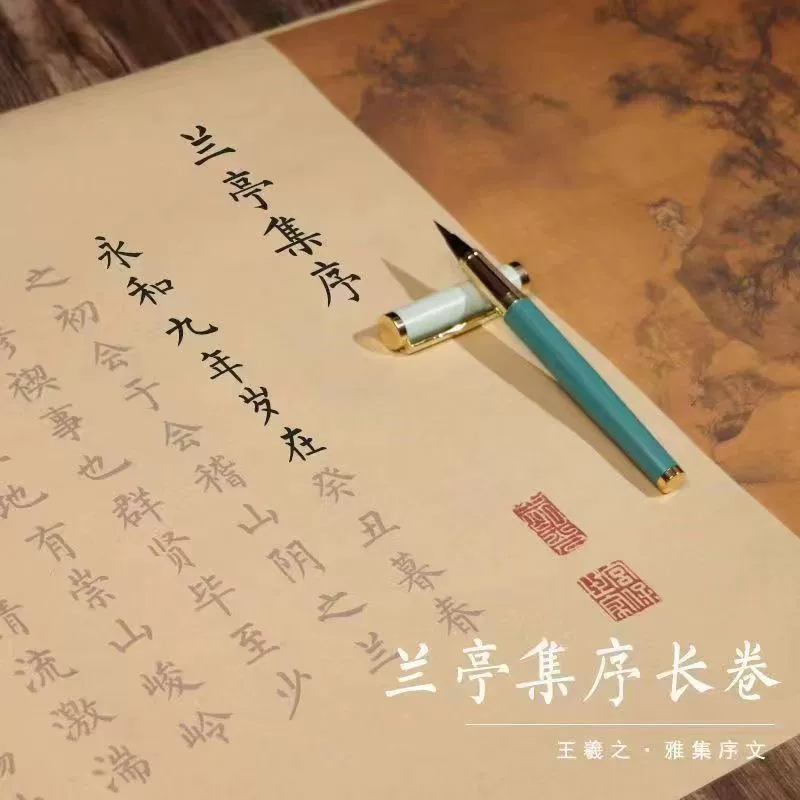 兰亭集序
永和九年岁在癸丑暮春
之初会于会稽山阴之兰
禊事也群贤毕至少
地有崇山峻岭
清流激湍
兰亭集序长卷
王羲之·雅集序文